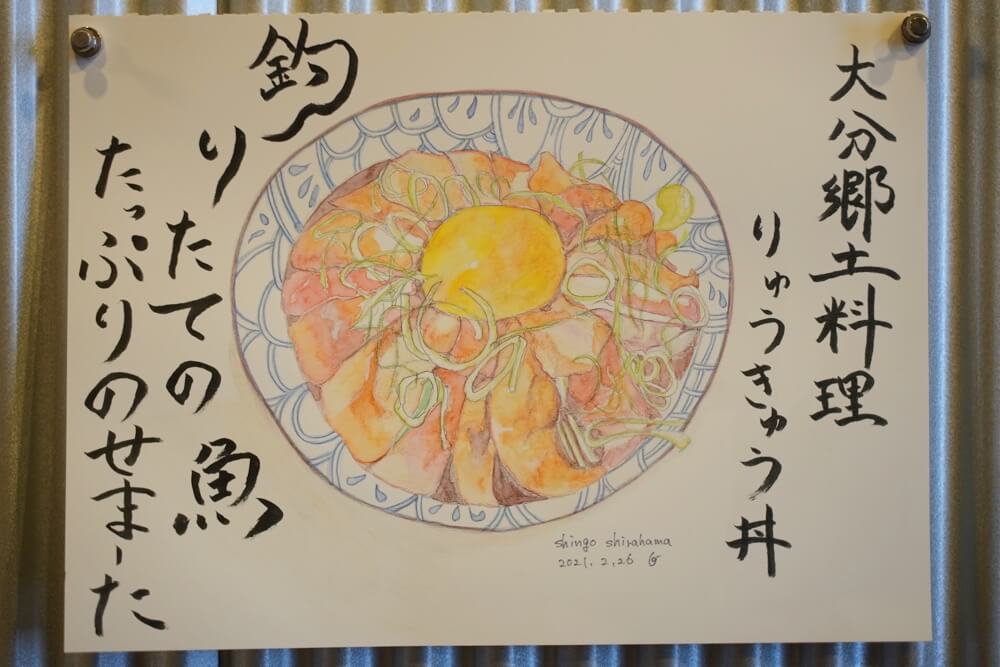 大分郷土料理
りゅうきゅう丼
釣りたての魚
たっぷりのせまーた
shingo shirahama
2021.2.26